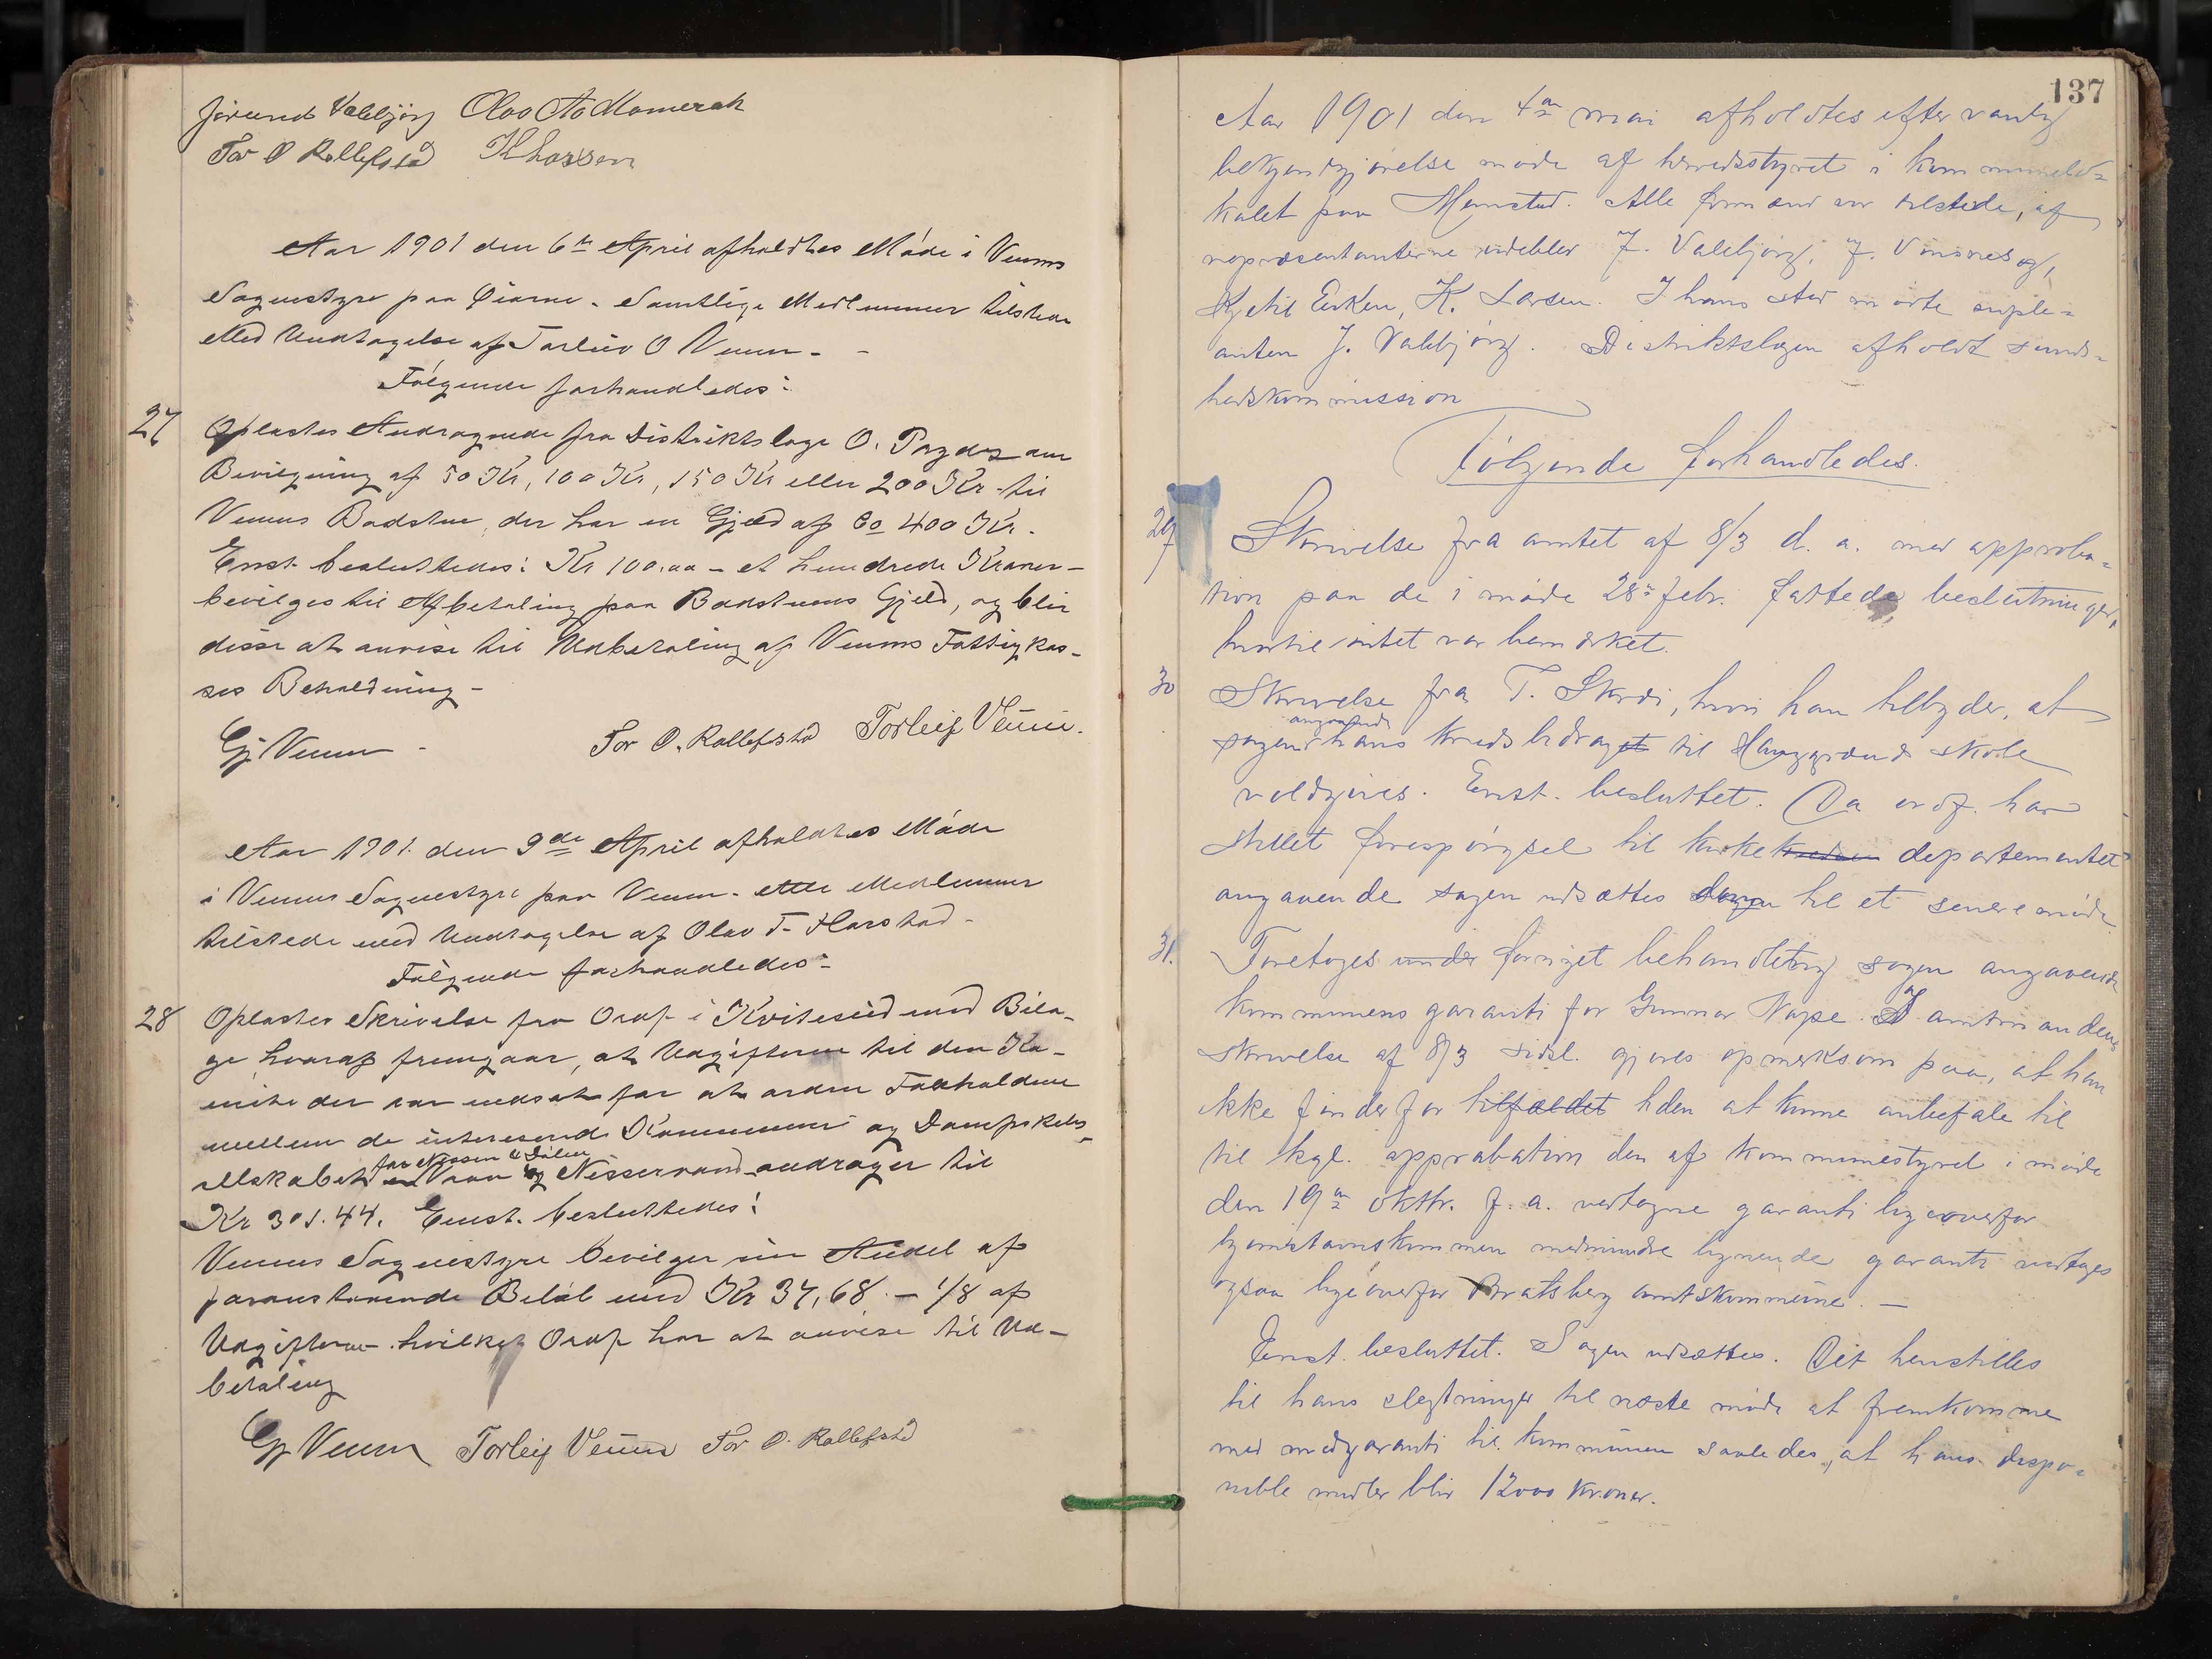 Jørund Valebjørg Olav Aa Momerak
Tor O Rollefstad K Larsen
Aar 1901 den 6te April afholdtes Møde i Veums
Sognestyre paa Øiarne. Samtlige Medlemmer tilstede
Med Undtagelse af Torleiv O Veum.
Følgende forhandledes:
27 Oplæstes Andragende fra Distriktslæge O. om
Bevilgning af 50 Kr, 100 Kr, 150 Kr eller 200 Kr til
Veums Badstue, der har en Gjæld af Ca 400 Kr.
Enst. besluttedes: Kr 100.00 - et hundrede Kroner -
bevilges til Afbetaling paa Badstuens Gjæld, og blir
disse at anvise til Udbetaling af Veums Fattigkas-
ses Beholdning -
Gj. Veum - Tor O. Rollefstad Torleif Veum.
Aar 1901 den 9de April afholdtes Møde
i Veums Sognestyre paa Veum. Alle Medlemmer
tilstede med Undtagelse af Olav T. Harstad -
Følgende forhandledes:
28 Oplæstes Skrivelse fra Ordf. i Kviteseid med Bila-
ge, hvoraf fremgaar, at Udgifterne til den Ko-
mite der var nedsat for at ordne Forholdene
mellem de interesserede Kommuner og Dampskibs-
selskabet for Nisser & Vraavand og Nisservand andrager til
Kr 301.44. Enst. besluttedes:
Veums Sognestyre bevilger sin Andel af
foranstaaende Beløb med Kr 37,68. - 1/8 af
Udgifterne - hvilket Ordf har at anvise til Ud-
betaling
Gj Veum Torleif Veum Tor O. Rollefstad
137
Aar 1901 den 4de mai afholdtes efter vanlig
bekjendtgjørelse møde af herredsstyret i kommunelo=
kalet paa Moenstad. Alle formænd var tilstede, af
repræsentanterne udeblev J. Valebjørg, J. Vinsnes og,
Kjetil Eiken, K. Larsen. I hans sted mødte suple=
anten J. Valebjørg. Distriktslægen afholdt sund=
hedskommission
Følgende forhandledes.
29 Skrivelse fra amtet af 8/3 d. a. med approba=
tion paa de i møde 28de febr. fattede beslutninger,
hvortil intet var bemærket.
30 Skrivelse fra T. Skrdi, hvori han tilbyder, at
sagen angaaende hans kredsbidraget til Haugrand skole
voldgives. Enst. besluttet. Da ordf. har
stillet forespørgsel til kirkekredsen departementet
angaaende sagen udsættes sagen til et senere møde
31. Foretoges under fornyet behandling sagen angaaende
kommunens garanti for Gunnar Nape. I amtmandens
skrivelse af 8/3 sidstl. gjøres opmerksom paa, at han
ikke finder for tilfældet tiden at kunne anbefale til
til kgl. approbation den af kommunestyret i møde
den 19de oktbr. f. a. vedtagne garanti ligeoverfor
medmindre lignende garanti vedtages
ogsaa ligeoverfor Bratsberg amtskommune. -
Enst. besluttet. Sagen udsættes. Det henstilles
til hans slegtninger til næste møde at fremkomme
med medgaranti til kommunen saaledes, at hans dispo=
nible midler blir 12000 kroner.